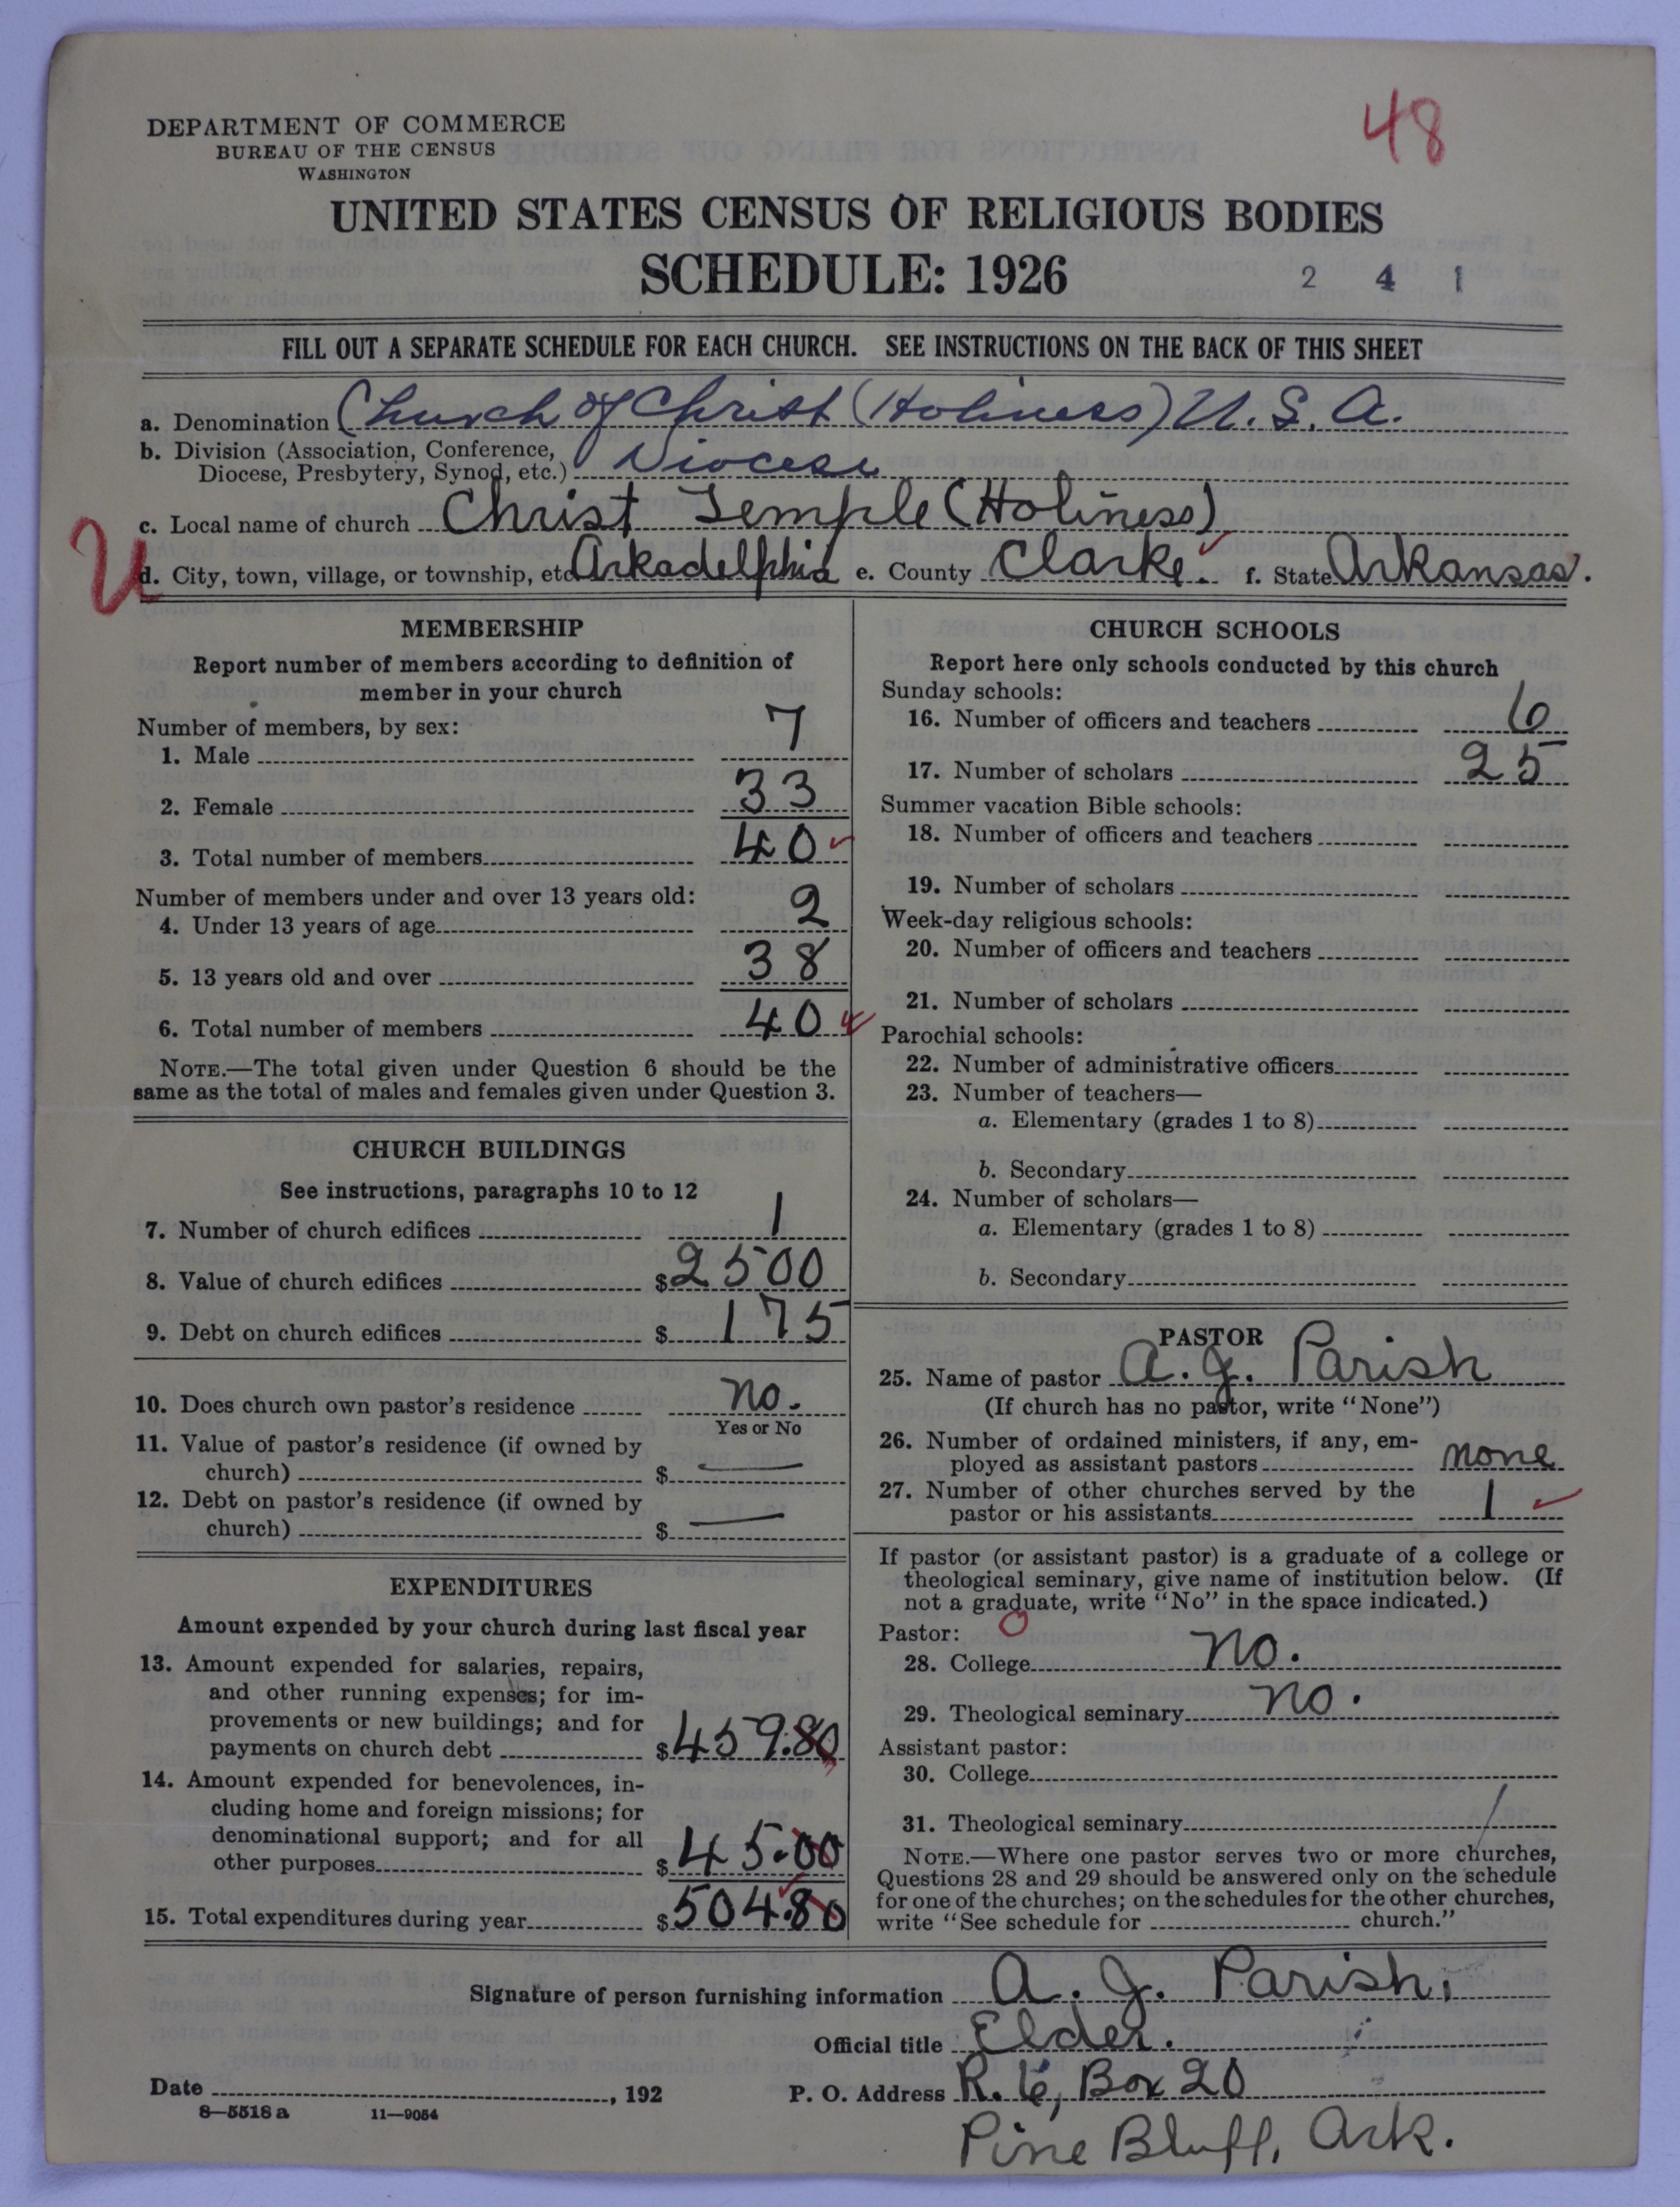 48
DEPARTMENT OF COMMERCE
BUREAU OF THE CENSUS
WASHINGTON
UNITED STATES CENSUS OF RELIGIOUS BODIES
SCHEDULE: 1926
2 4 1
FILL OUT A SEPARATE SCHEDULE FOR EACH CHURCH. SEE INSTRUCTIONS ON THE BACK OF THIS SHEET
a. Denomination Church of Christ (Holiness) U.S.A.
b. Division (Association, Conference,
Diocese, Presbytery, Synod, etc.) Diocese
c. Local name of church Christ Temple (Holiness)
U
d. City, town, village, or township, etc. Arkadelphia e. County Clarke. f. State Arkansas.
MEMBERSHIP
Report number of members according to definition of
member in your church
Number of members, by sex:
1. Male 7
2. Female 33
3. Total number of members 40
Number of members under and over 13 years old:
4. Under 13 years of age 2
5. 13 years old and over 38
6. Total number of members 40
NOTE.—The total given under Question 6 should be the
same as the total of males and females given under Question 3.
CHURCH BUILDINGS
See instructions, paragraphs 10 to 12
7. Number of church edifices 1
8. Value of church edifices $2500
9. Debt on church edifices $175
10. Does church own pastor's residence no.
Yes or No
11. Value of pastor's residence (if owned by
church) $ —
12. Debt on pastor's residence (if owned by
church) $ —
EXPENDITURES
Amount expended by your church during last fiscal year
13. Amount expended for salaries, repairs,
and other running expenses; for im-
provements or new buildings; and for
payments on church debt $459.80
14. Amount expended for benevolences, in-
cluding home and foreign missions; for
denominational support; and for all
other purposes $45.00
15. Total expenditures during year $504.80
CHURCH SCHOOLS
Report here only schools conducted by this church
Sunday schools:
16. Number of officers and teachers 6
17. Number of scholars 25
Summer vacation Bible schools:
18. Number of officers and teachers
19. Number of scholars
Week-day religious schools:
20. Number of officers and teachers
21. Number of scholars
Parochial schools:
22. Number of administrative officers
23. Number of teachers—
a. Elementary (grades 1 to 8)
b. Secondary
24. Number of scholars—
a. Elementary (grades 1 to 8)
b. Secondary
PASTOR
25. Name of pastor A. J. Parish
(If church has no pastor, write "None")
26. Number of ordained ministers, if any, em-
ployed as assistant pastors none
27. Number of other churches served by the
pastor or his assistants 1
If pastor (or assistant pastor) is a graduate of a college or
theological seminary, give name of institution below. (If
not a graduate, write "No" in the space indicated.)
Pastor:
28. College no.
29. Theological seminary no.
Assistant pastor:
30. College
31. Theological seminary
NOTE.—Where one pastor serves two or more churches,
Questions 28 and 29 should be answered only on the schedule
for one of the churches; on the schedules for the other churches,
write "See schedule for church."
Signature of person furnishing information A. J. Parish,
Official title Elder.
Date , 192 P. O. Address R. 6, Box 20
8—5518 a 11—9054
Pine Bluff, Ark.